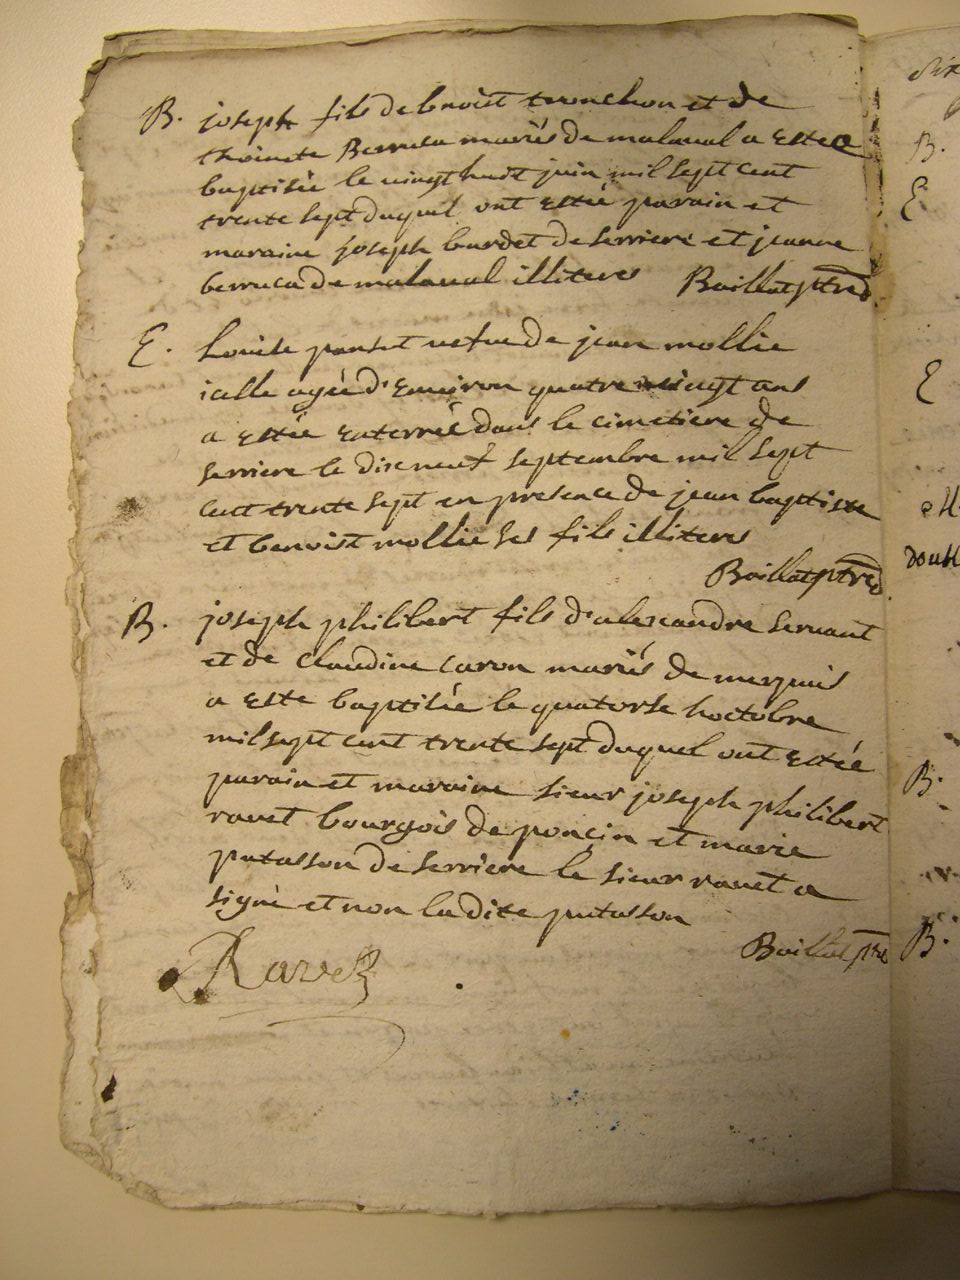 B. joseph fils de benoist tronchon et de
thoinete Berruca mariés de malaval a estee
baptisée le vingt huit juin mil sept cent
trente sept duquel ont estée parain et
maraine joseph burdet de serriere et jeanne
berruca de malaval illiteres Baillat ptre
E. Louise ponset vefue de jean mollie
icelle agée d'Environ quatre vingt ans
a estée enterrée dans le cimetiere de
serriere le dixneuf septembre mil sept
cent trente sept en presence de jean baptiste
et benoist mollie ses fils illiteres
Baillat ptre
B. joseph philibert fils d'alexandre servant
et de claudine caron mariés de merpuis
a este baptisée le quatorse hoctobre
mil sept cent trente sept duquel ont estée
parain et maraine sieur joseph philibert
ravet bourgois de poncin et marie
putasson de serriere le sieur ravet a
signé et non ladite putasson
Baillat ptre
Ravet
B.
E
E
B.
B.